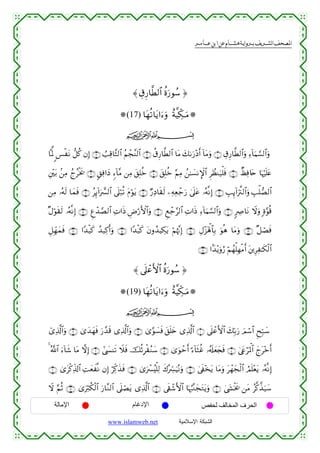 المصحف الشريف برواية هشام عن ابن عامر
﴿ سُورَةُ ٱلطَّارِقِ ﴾
* مَكِّيَّةٌ وَءَايَاتُهَا (17) *
بِسْمِ ٱللَّهِ ٱلرَّحْمَٰنِ ٱلرَّحِيمِ
وَٱلسَّمَآءِ وَٱلطَّارِقِ ۝ وَمَآ أَدْرَىٰكَ مَا ٱلطَّارِقُ ۝ ٱلنَّجْمُ ٱلثَّاقِبُ ۝ إِن كُلُّ نَفْسٍ لَّمَّا
عَلَيْهَا حَافِظٌ ۝ فَلْيَنظُرِ ٱلْإِنسَٰنُ مِمَّ خُلِقَ ۝ خُلِقَ مِن مَّآءٍ دَافِقٍ ۝ يَخْرُجُ مِنۢ بَيْنِ
ٱلصُّلْبِ وَٱلتَّرَآئِبِ ۝ إِنَّهُۥ عَلَىٰ رَجْعِهِۦ لَقَادِرٌ ۝ يَوْمَ تُبْلَى ٱلسَّرَآئِرُ ۝ فَمَا لَهُۥ مِن
قُوَّةٍ وَلَا نَاصِرٍ ۝ وَٱلسَّمَآءِ ذَاتِ ٱلرَّجْعِ ۝ وَٱلْأَرْضِ ذَاتِ ٱلصَّدْعِ ۝ إِنَّهُۥ لَقَوْلٌ
فَصْلٌ ۝ وَمَا هُوَ بِٱلْهَزْلِ ۝ إِنَّهُمْ يَكِيدُونَ كَيْدًا ۝ وَأَكِيدُ كَيْدًا ۝ فَمَهِّلِ
ٱلْكَٰفِرِينَ أَمْهِلْهُمْ رُوَيْدًۢا ۝
﴿ سُورَةُ ٱلْأَعْلَىٰ ﴾
* مَكِّيَّةٌ وَءَايَاتُهَا (19) *
بِسْمِ ٱللَّهِ ٱلرَّحْمَٰنِ ٱلرَّحِيمِ
سَبِّحِ ٱسْمَ رَبِّكَ ٱلْأَعْلَى ۝ ٱلَّذِى خَلَقَ فَسَوَّىٰ ۝ وَٱلَّذِى قَدَّرَ فَهَدَىٰ ۝ وَٱلَّذِىٓ
أَخْرَجَ ٱلْمَرْعَىٰ ۝ فَجَعَلَهُۥ غُثَآءً أَحْوَىٰ ۝ سَنُقْرِئُكَ فَلَا تَنسَىٰٓ ۝ إِلَّا مَا شَآءَ ٱللَّهُ ۚ
إِنَّهُۥ يَعْلَمُ ٱلْجَهْرَ وَمَا يَخْفَىٰ ۝ وَنُيَسِّرُكَ لِلْيُسْرَىٰ ۝ فَذَكِّرْ إِن نَّفَعَتِ ٱلذِّكْرَىٰ ۝
سَيَذَّكَّرُ مَن يَخْشَىٰ ۝ وَيَتَجَنَّبُهَا ٱلْأَشْقَى ۝ ٱلَّذِى يَصْلَى ٱلنَّارَ ٱلْكُبْرَىٰ ۝ ثُمَّ لَا
الحرف المخالف لحفص الإدغام الإمالة
الشبكة الإسلامية www.islamweb.net